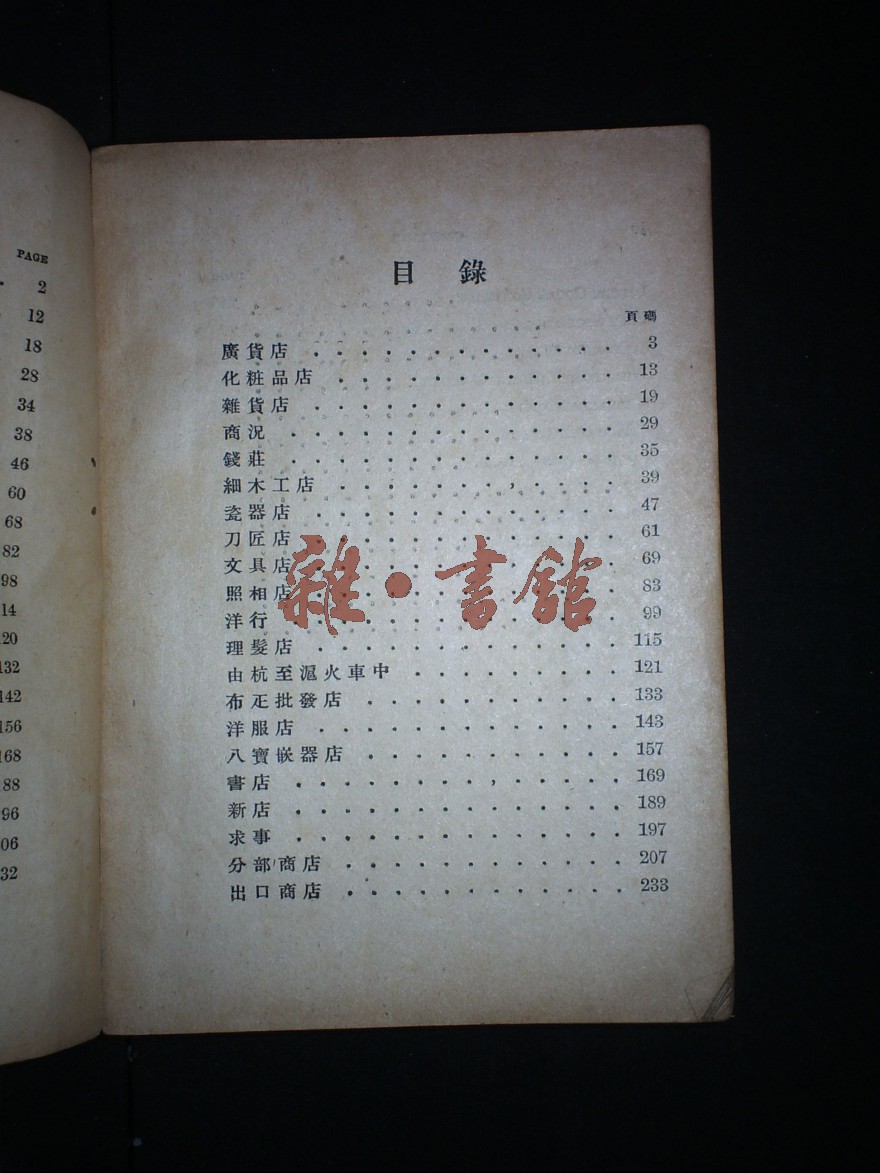 PAGE
2
12
18
28
34
38
46
60
68
82
98
14
20
132
142
156
168
88
96
06
32
目錄
頁碼
廣貨店 . . . . . . . . . . . . . 3
化粧品店 . . . . . . . . . . . . 13
雜貨店 . . . . . . . . . . . . . 19
商況 . . . . . . . . . . . . . . 29
錢莊 . . . . . . . . . . . . . . 35
細木工店 . . . . . . . , . . . . 39
瓷器店 . . . . . . . . . . . . . 47
刀匠店 . . . . . . . . . . . . . 61
文具店 . . . . . . . . . . . . . 69
照相店 . . . . . . . . . . . . . 83
洋行 . . . . . . . . . . . . . . 99
理髮店 . . . . . . . . . . . . . 115
由杭至滬火車中 . . . . . . . . . 121
布疋批發店 . . . . . . . . . . . 133
洋服店 . . . . . . . . . . . . . 143
八寶嵌器店 . . . . . . . . . . . 157
書店 . . . . . . . . , . . . . . 169
新店 . . . . . . . . . . . . . . 189
求事 . . . . . . . . . . . . . . 197
分部商店 . . . . . . . . . . . . 207
出口商店 . . . . . . . . . . . . 233
雜·書館